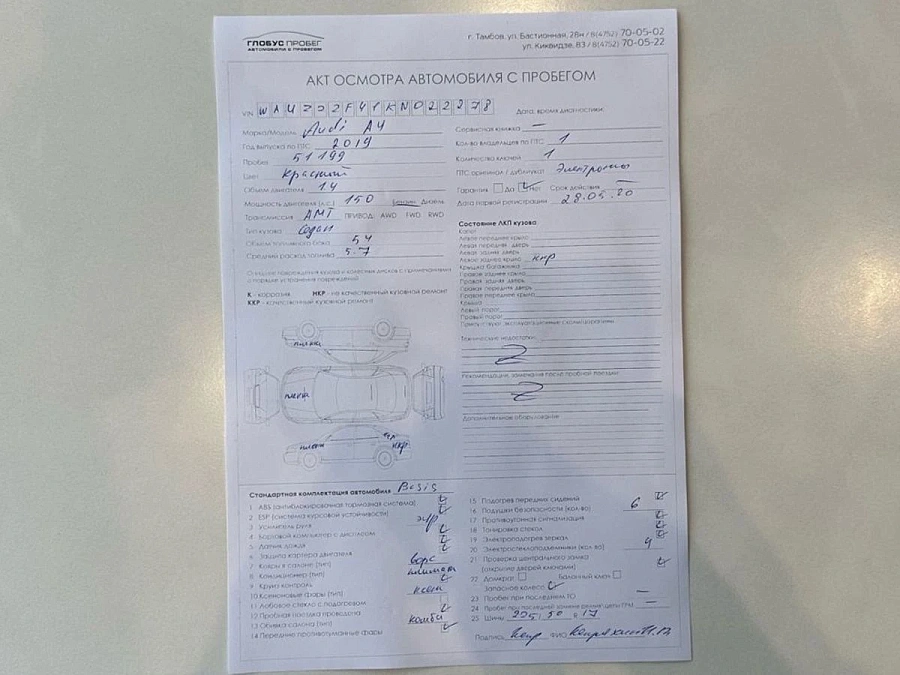 ГЛОБУС ПРОБЕГ
АВТОМОБИЛИ С ПРОБЕГОМ
г. Тамбов, ул. Бастионная, 28н / 8(4752) 70-05-02
ул. Киквидзе, 83 / 8(4752) 70-05-22
АКТ ОСМОТРА АВТОМОБИЛЯ С ПРОБЕГОМ
VIN WAUZZZF41KN022378
Дата, время диагностики:
Марка/Модель Audi A4
Год выпуска по ПТС 2019
Пробег 51 199
Цвет красный
Объем двигателя 1.4
Мощность двигателя (л.с.) 150 Бензин Дизель
Трансмиссия АМТ ПРИВОД: AWD FWD RWD
Тип кузова седан
Объем топливного бака 54
Средний расход топлива 5.7
Сервисная книжка —
Кол-во владельцев по ПТС 1
Количество ключей 1
ПТС оригинал / дубликат Электронный
Гарантия Да Нет Срок действия —
Дата первой регистрации
К - коррозия НКР - не качественный кузовной ремонт
ККР - качественный кузовной ремонт
Состояние ЛКП кузова
Капот
Левое переднее крыло
Левая передняя дверь
Левая задняя дверь
Левое заднее крыло ккр
Крышка багажника
Правое заднее крыло
Правая задняя дверь
Правая передняя дверь
Правое переднее крыло
Крыша
Левый порог
Правый порог
Технические недостатки:
Рекомендации, замечания после пробной поездки:
Дополнительное оборудование
пленка
пленка
пленка
ккр
Стандартная комплектация автомобиля Basis
1 ABS (антиблокированная тормозная система)
2 ESP (система курсовой устойчивости)
3 Усилитель руля эур
4 Бортовой компьютер с дисплеем
5 Датчик дождя
6 Защита картера двигателя
7 Ковры в салоне (тип) ворс
8 Кондиционер (тип) климат
9 Круиз контроль
10 Ксеноновые фары (тип) ксен
11 Лобовое стекло с подогревом
12 Пробная поездка проведена
13 Обивка салона (тип) комби
14 Передние противотуманные фары
15 Подогрев передних сидений
16 Подушки безопасности (кол-во) 6
17 Противоугонная сигнализация
18 Тонировка стекол
19 Электроподогрев зеркал
20 Электростеклоподъемники (кол-во) 4
21 Проверка центрального замка
(открытие дверей ключами)
22 Домкрат Балонный ключ
Запасное колесо
23 Пробег при последнем ТО —
24 Пробег при последней замене ремня (цепи ГРМ) —
25 Шины 225 / 50 R 17
Подпись ФИО